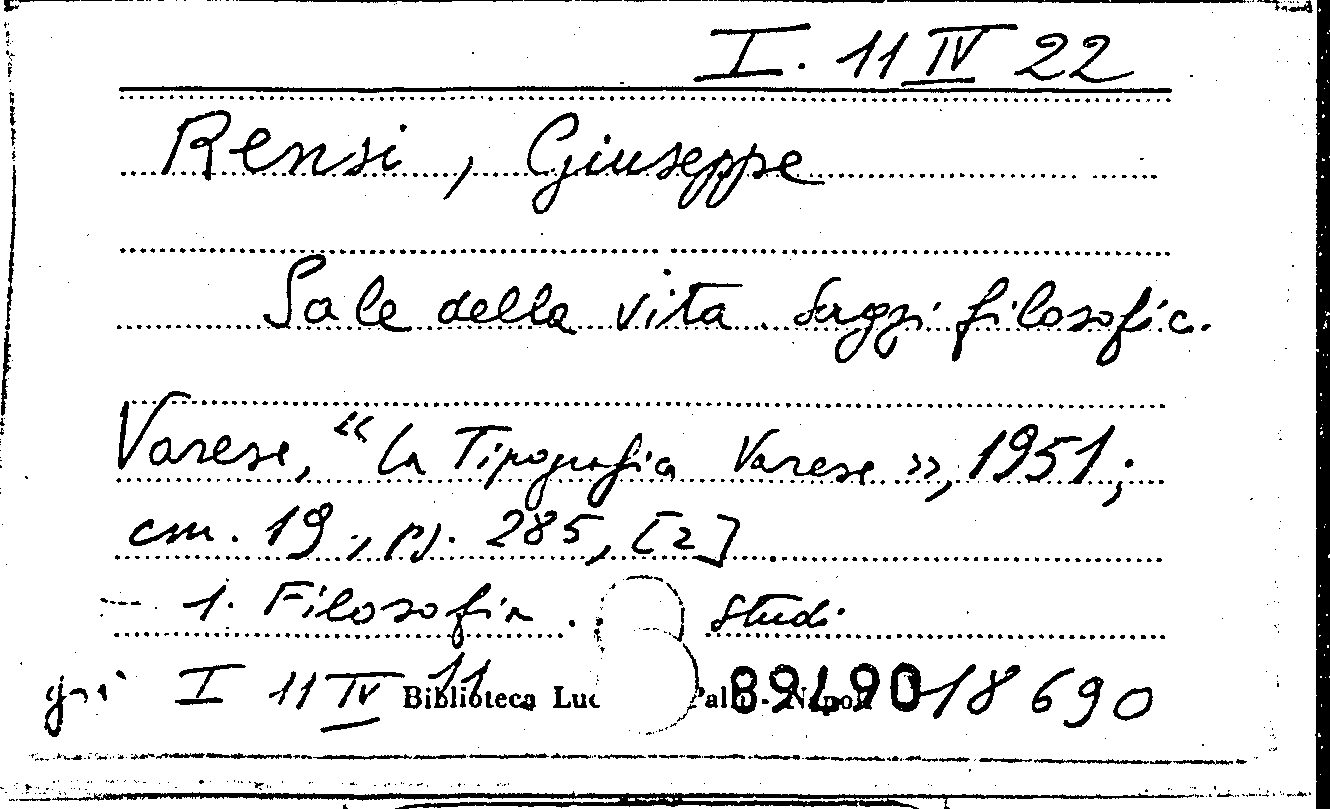 I. 11 IV 22
Rensi, Giuseppe
Sale della vita. Saggi filosofic.
Varese, "La Tipografia Varese", 1951;
cm. 19, pp. 285, [2].
1. Filosofia. Studi
I 11 IV 11 Biblioteca Luc Pal 18 690